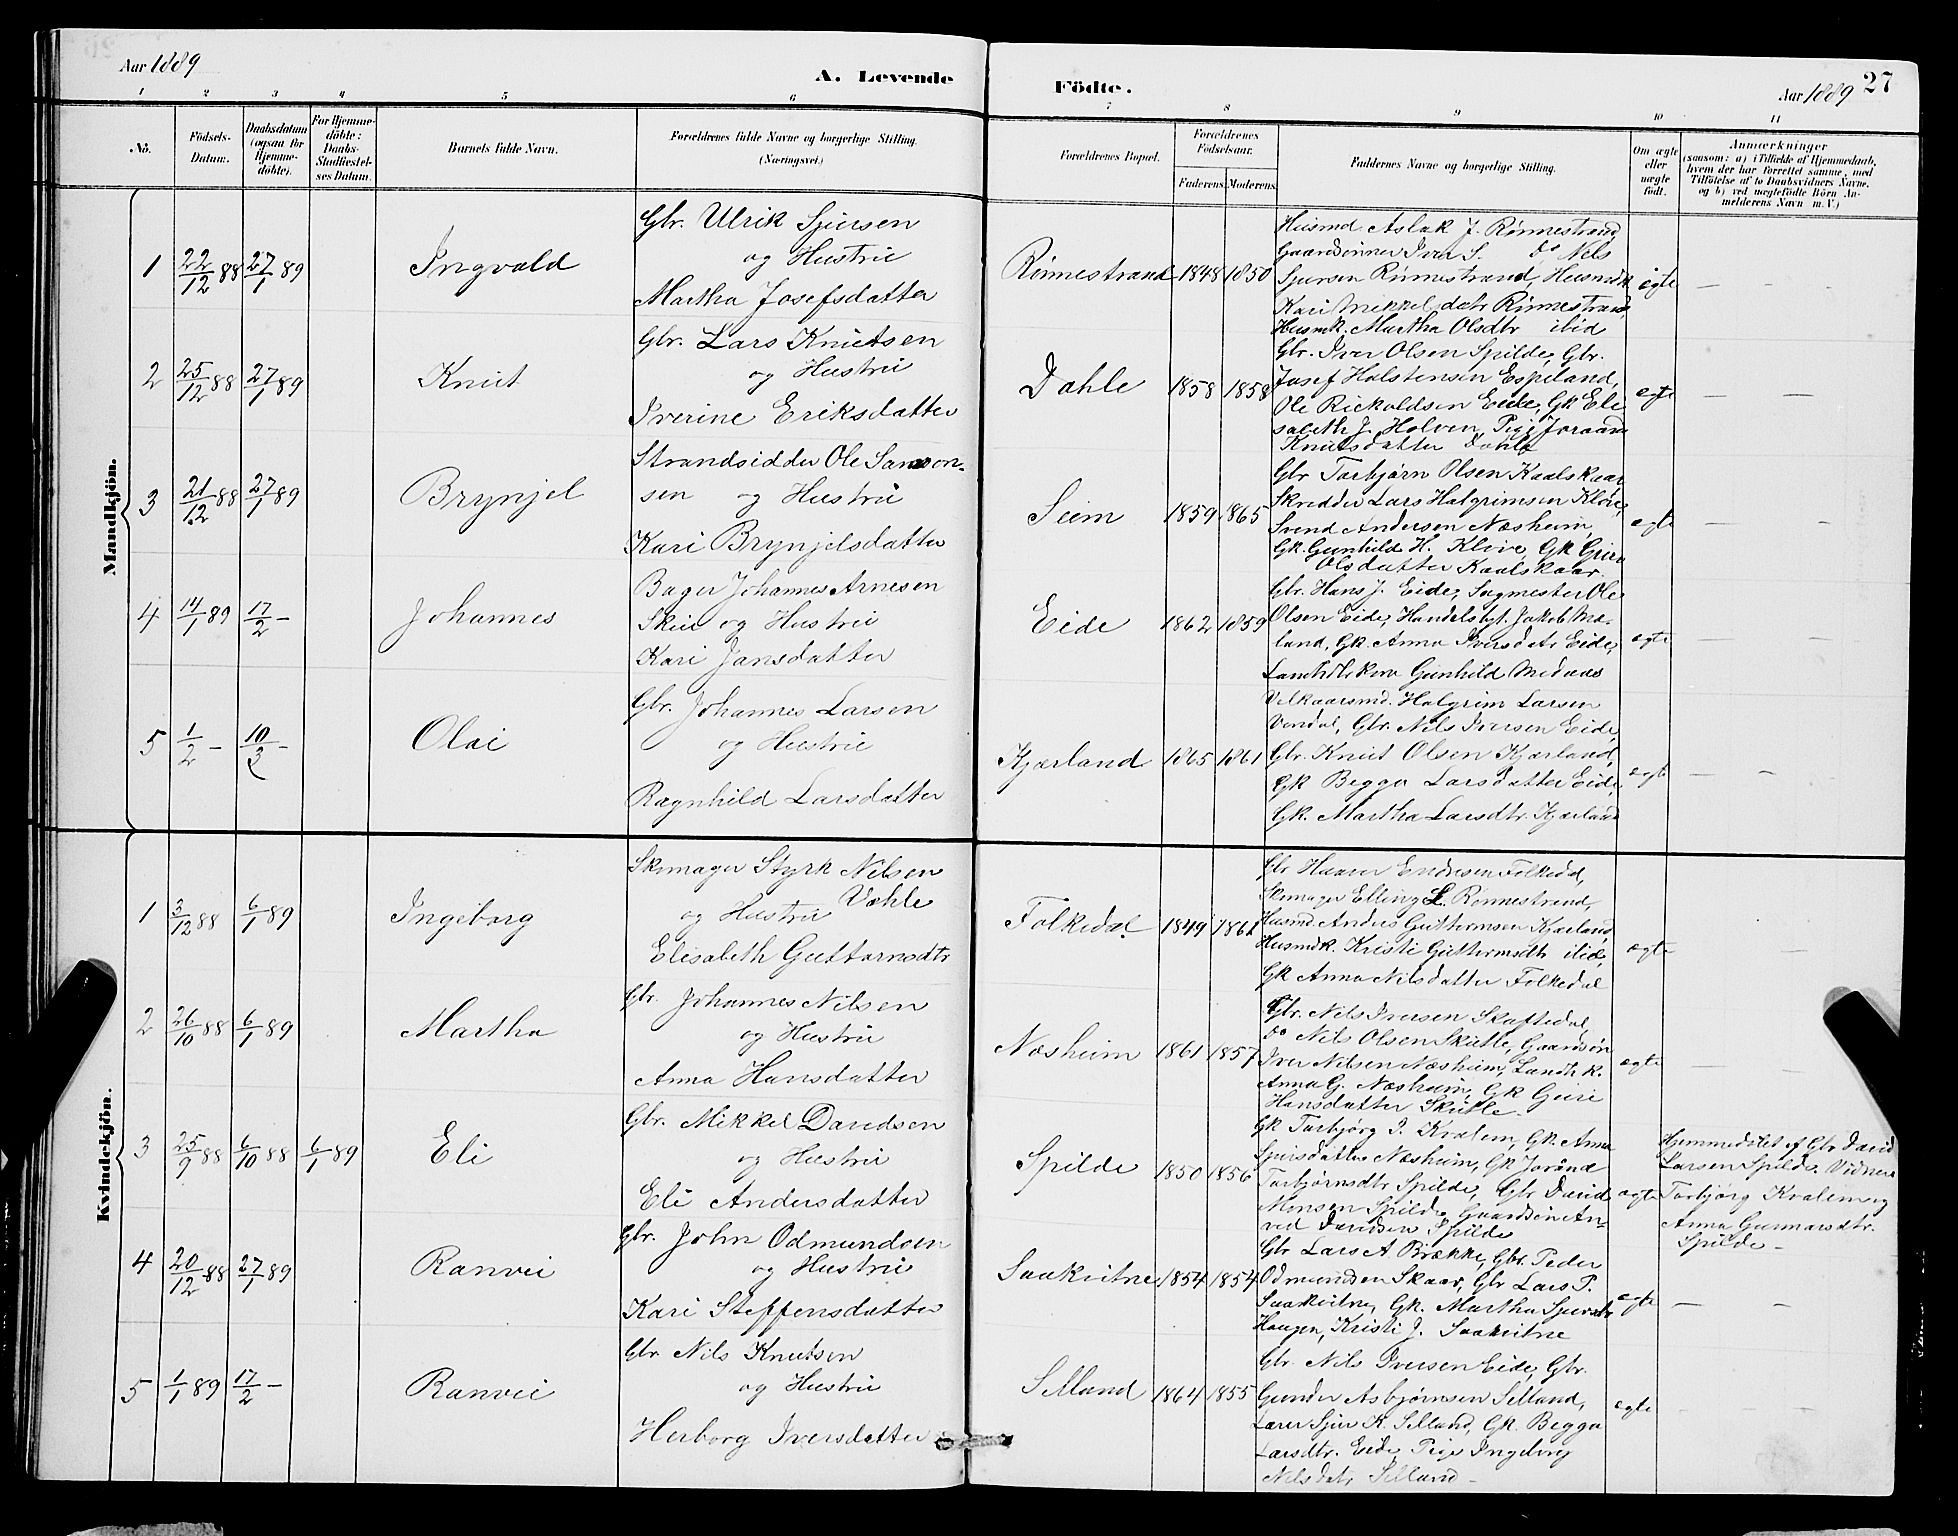 Aar 1889
A. Levende
Födte.
Aar 1889
27
1 2 3 4 5 6 7 8 9 10 11
No.
Födsels-
Datum.
Daabsdatum
(ogsaa for
Hjemme-
döbte).
For Hjemme-
döbte:
Daabs-
Stadfæstel-
ses Datum.
Barnets fulde Navn.
Forældrenes fulde Navne og borgerlige Stilling.
(Næringsvei.)
Forældrenes Bopæl.
Forældrenes
Födselsaar.
Faderens. Moderens.
Faddernes Navne og borgerlige Stilling.
Om ægte
eller
uægte
födt.
Anmærkninger
(saasom: a) i Tilfælde af Hjemmedaab,
hvem der har forrettet samme, med
Tilföielse af to Daabsvidners Navne,
og b) ved uægtefödte Börn An-
melderens Navn m. V.)
Mandkjön.
1 22/12 88 27/1 89
Ingvald
Gbr. Ulrik Sjursen
og Hustru
Martha Josefsdatter
Rönnestrand 1848 1850
Husmd. Aslak J. Rönnestrand,
Gaardmand Iver S. do Nels
Sjursen Rönnestrand, Husmdk
Kari Mikkelsdatr Rönnestrand,
Husmk. Martha Olsdtr ibid
ægte — —
2 25/12 88 27/1 89
Knut
Gbr. Lars Knutsen
og Hustru
Iverine Eriksdatter
Dahle 1858 1858
Gbr. Iver Olsen Spilde, Gbr.
Josef Halstensen Espeland,
Ole Rickoldsen Eide, Gk Eli
sabeth J. Holven, Pige Joraand
Knutsdatter Dahle
ægte — —
3 21/12 88 27/1 89
Brynjel
Strandsidder Ole Samson-
sen og Hustru
Kari Brynjelsdatter
Seim 1859 1865
Gbr Torbjörn Olsen Kaalskaar,
Skredder Lars Halgrimsen Klöve,
Svend Andersen Næsheim,
Gk. Gunhild H. Klöve, Gk Guro
Olsdatter Kaalskaar.
ægte — —
4 14/1 89 17/2 —
Johannes
Bager Johannes Arnesen
Skui og Hustru
Kari Jansdatter
Eide 1862 1859
Gbr. Hans J. Eide, Sagmester Ole
Olsen Eide, Handelsbgt. Jakob Mæ-
land, Gk. Anna Iversdatr Eide,
Gunhild Midnæs
ægte — —
5 1/2 — 10/3 —
Olai
Gbr. Johannes Larsen
og Hustru
Ragnhild Larsdatter
Kjærland 1865 1861
Velkaarsmd. Halgrim Larsen
Vendal, Gbr. Nils Iversen Eide,
Gbr. Knut Olsen Kjærland,
Gk Begga Larsdatter Eide,
Gk. Martha Larsdtr. Kjærland
ægte — —
Kvindekjön.
1 3/12 88 6/1 89
Ingeborg
Skomager Styrk Nilsen
og Hustru Væhle
Elisabeth Guttormsdtr
Folkedal 1849 1861
Gbr Haaver Endresen Folkedal,
Skomager Elling L. Rönnestrand,
Husmd. Anders Guttormsen Kjærland,
Husmdk. Kristi Guttormsdtr ibid,
Gk Anna Nilsdatter Folkedal
ægte —
2 26/10 88 6/1 89
Martha
Gbr. Johannes Nilsen
og Hustru
Anna Hansdatter
Næsheim 1861 1857
Gbr. Nils Iversen Skaftedal,
do Nils Olsen Skutle, Gaardsön
Iver Nilsen Næsheim, Landh k.
Anna G. Næsheim, Gk Guri
Hansdatter Skutle.
ægte — —
3 25/9 88 6/10 88 6/1 89
Eli
Gbr. Mikkel Davidsen
og Hustru
Eli Andersdatter
Spilde 1850 1856
Gk Torbjörg I. Kvalem, Gk. Anna
Sjursdatter Næsheim, Gk Jorönd
Torbjörnsdtr Spilde, Gbr David
Monsen Spilde, Gaardsön An-
ved Davidsen Spilde
ægte
Hjemmedöbt af Gbr David
Larsen Spilde. Vidner
Torbjörg Kvalem og
Anna Gunnarsdtr.
Spilde —
4 20/12 88 27/1 89
Ranvei
Gbr. John Odmundsen
og Hustru
Kari Steffensdatter
Saakvitne 1854 1854
Gbr Lars A Brække, Gbr. Peder
Odmundsen Skaar, Gbr Lars P.
Saakvitne, Gk. Martha Sjursdtr
Haugen, Kristi J. Saakvitne
ægte — —
5 1/1 89 17/2 —
Ranvei
Gbr Nils Knutsen
og Hustru
Herborg Iversdatter
Selland 1864 1855
Gbr. Nils Iversen Eide, Gbr.
Gunder Asbjörnsen Selland,
Lærer Sjur K. Selland, Gk. Begga
Larsdtr. Eide, Pige Ingeborg
Nilsdatr Selland —
ægte — — —